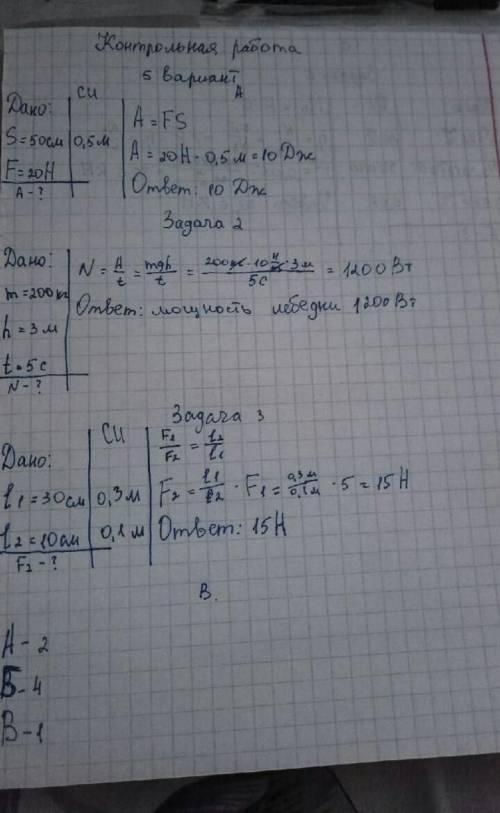 Контрольная работа
5 вариант
А
Дано:
СИ
S = 50см 0,5м
F = 20Н
A - ?
A = FS
A = 20Н · 0,5м = 10 Дж
Ответ: 10 Дж
Задача 2
Дано:
m = 200кг
h = 3м
t = 5с
N - ?
N = A/t = mgh/t = 200кг · 10 Н/кг · 3м / 5с = 1200 Вт
Ответ: мощность лебедки 1200 Вт
Задача 3
Дано:
СИ
l1 = 30см 0,3м
l2 = 10см 0,1м
F2 - ?
F1/F2 = l2/l1
F2 = l1/l2 · F1 = 0,3м/0,1м · 5 = 15Н
Ответ: 15Н
В.
А - 2
Б - 4
В - 1